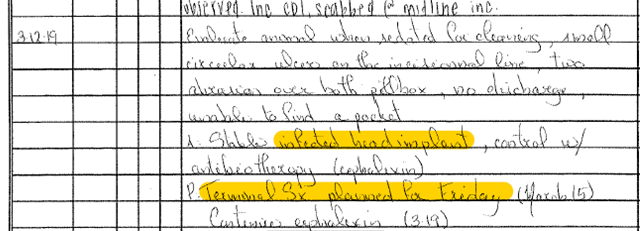 observed. Inc CDI, scabbed @ midline inc.
3-12-19 Evaluate animal when sedated for cleaning, small
circular ulcers on the incisional line, two
abrasion over both pillbox, no discharge,
unable to find a pocket
A: Stable infected head implant, control w/
antibiotherapy (cephalexin)
P: Terminal Sx planned for Friday (March 15)
Continue cephalexin (3-19)